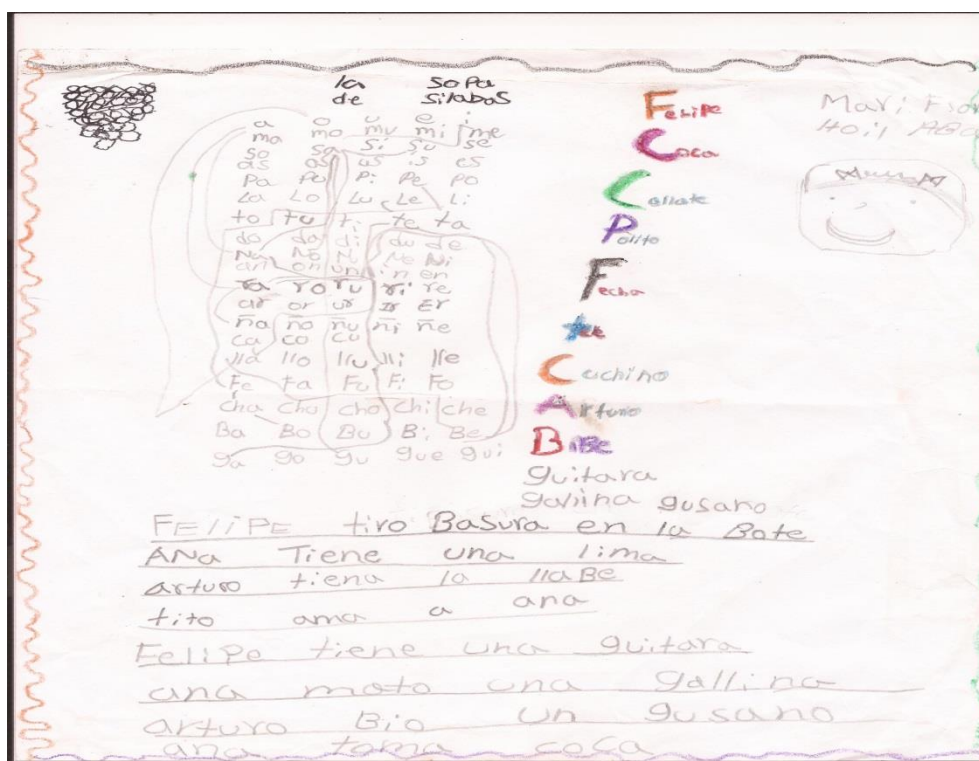 la sopa
de silabas
a o u e i
ma mo mu mi me
so sa si su se
as os us is es
Pa Pu Pi Pe Po
La Lo Lu Le Li
to tu ti te ta
da do di du de
Na No Nu Ne Ni
an on un in en
ra ro ru ri re
ar or ur Ir Er
ña ño ñu ñi ñe
ca co cu
lla llo llu lli lle
Fe Fa Fu Fi Fo
cha chu cho chi che
Ba Bo Bu Bi Be
ga go gu gue gui
Felipe
Coca
Callate
Polito
Fecha
Cuchino
Arturo
BiBE
guitara
gallina gusano
Mari Flor
Hoil
FEliPE tiro Basura en la Bote
ANa Tiene una lima
arturo tiena la llaBe
tito ama a ana
Felipe tiene una guitara
ana moto una gallina
arturo Bio un gusano
ana toma coca